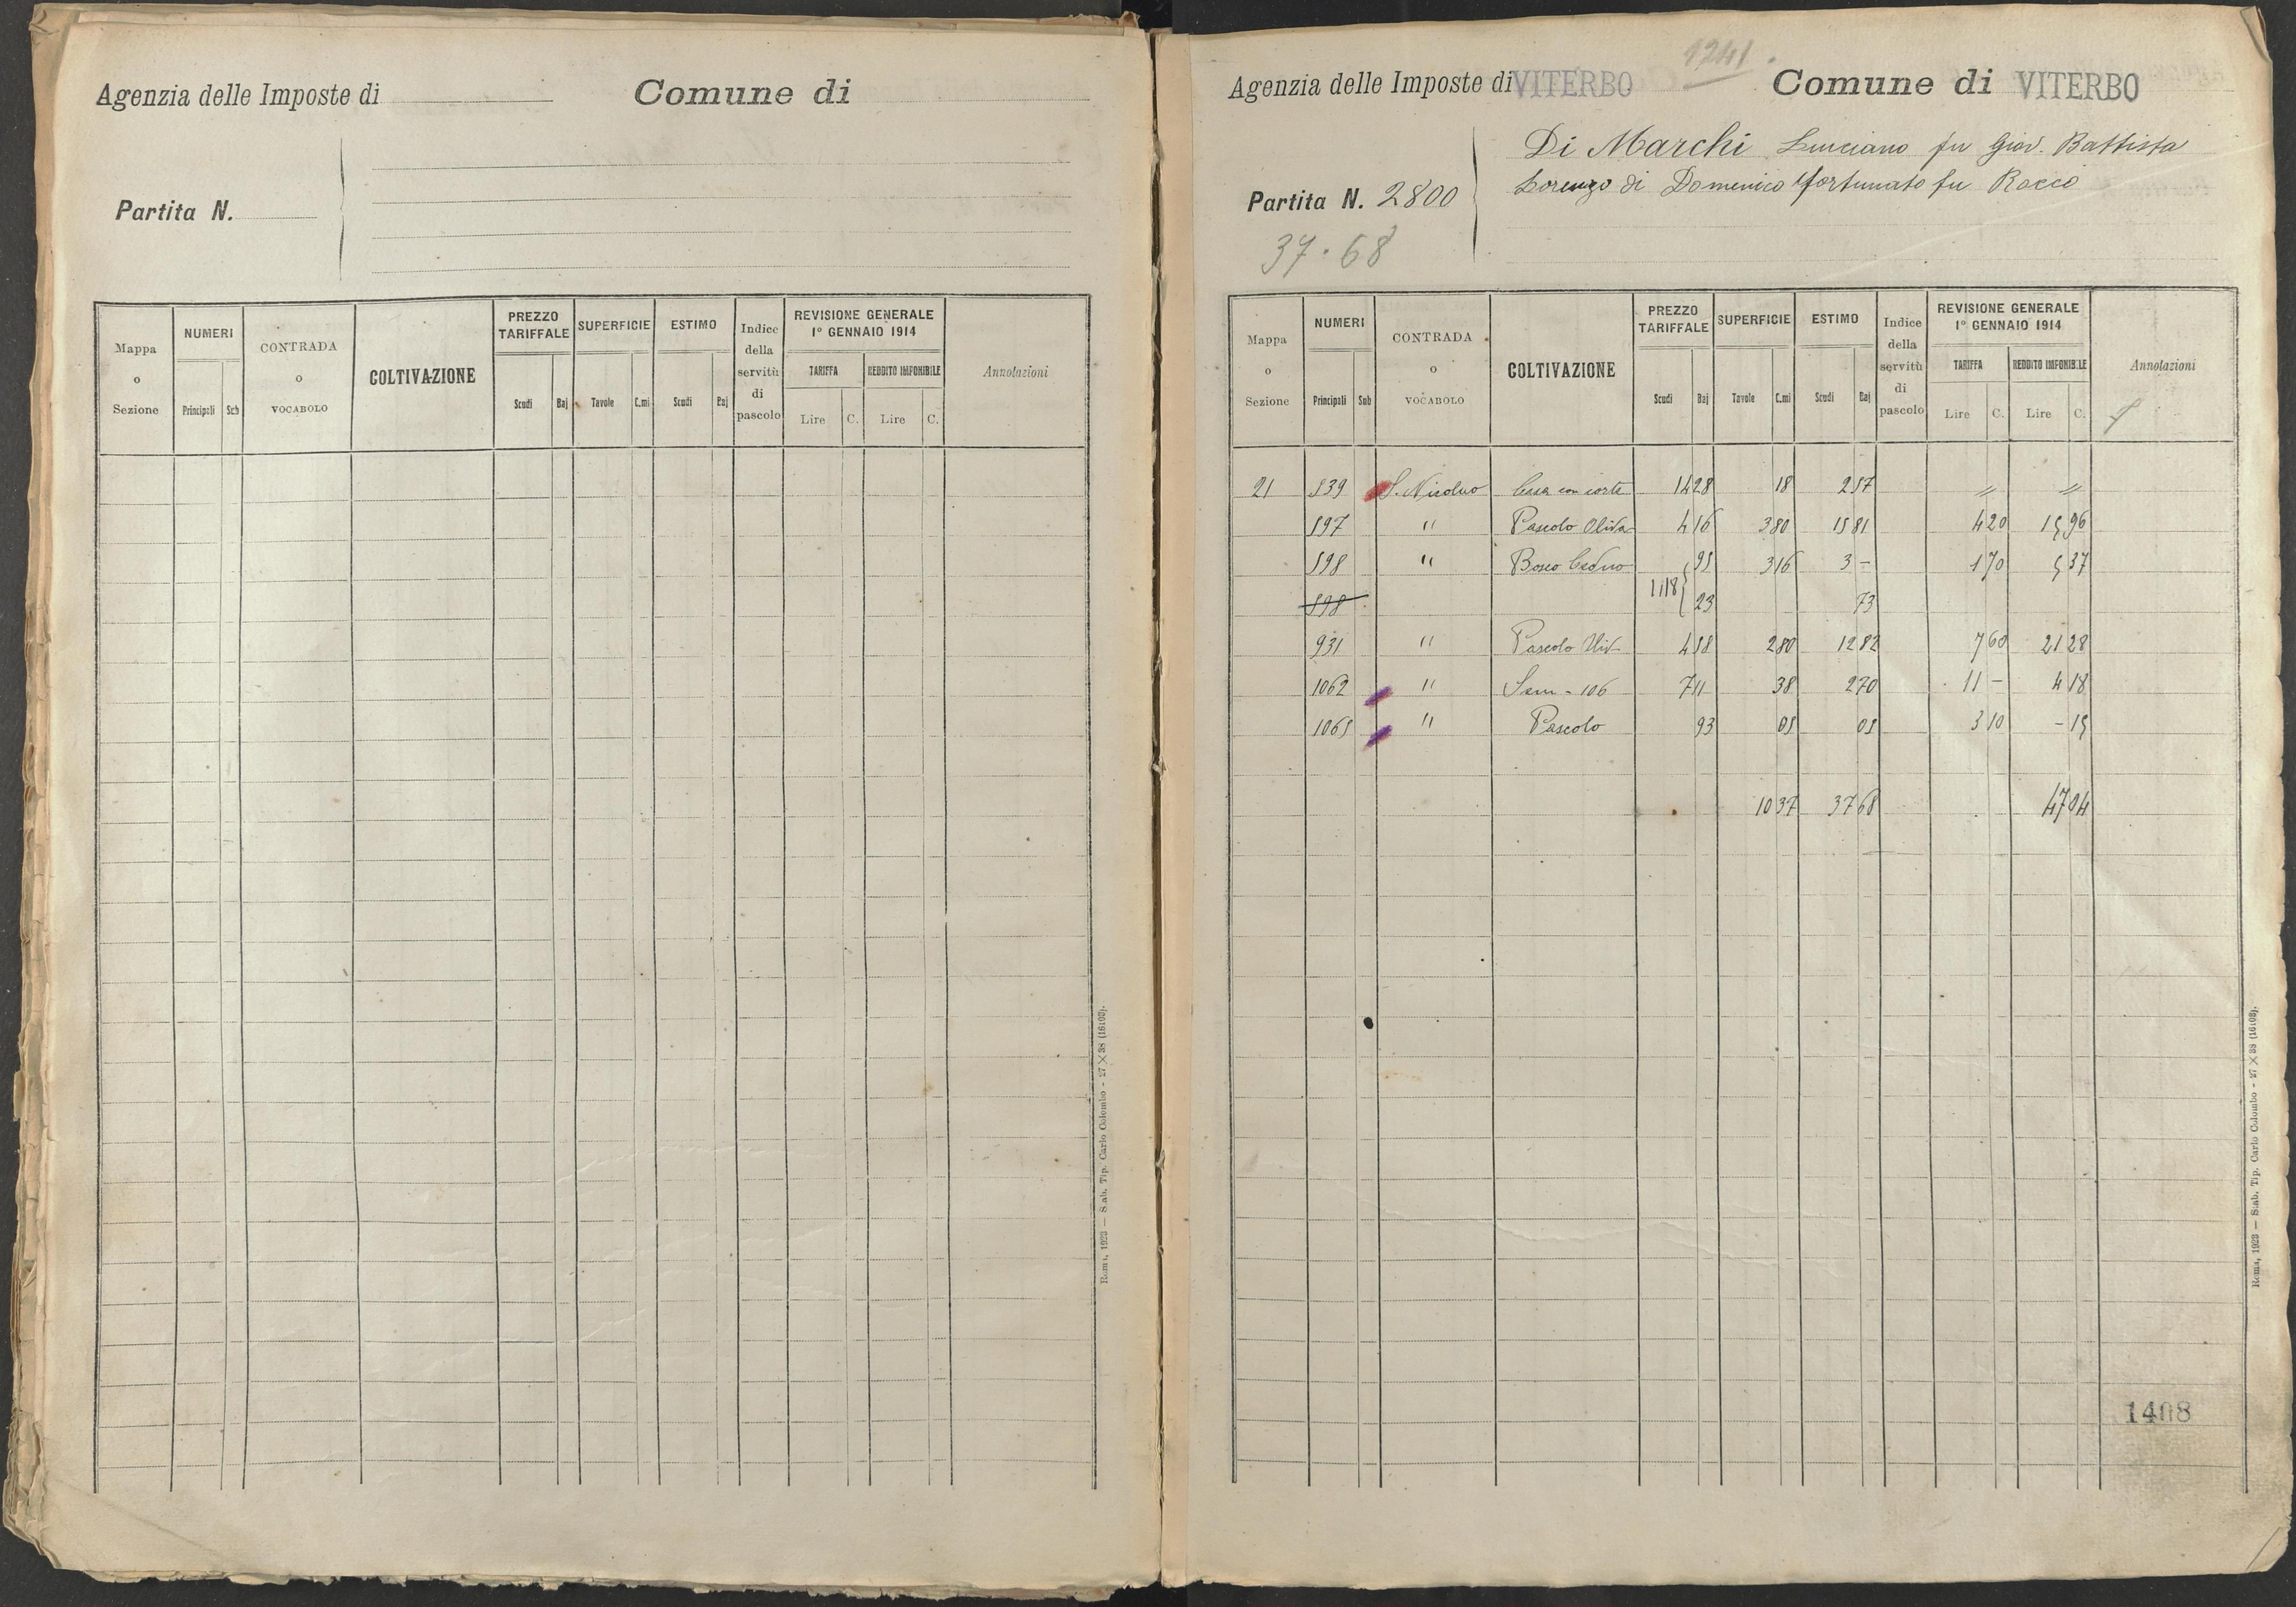 Agenzia delle Imposte di
Comune di
Partita N.
Mappa o Sezione | NUMERI Principali Sub | CONTRADA o VOCABOLO | COLTIVAZIONE | PREZZO TARIFFALE Scudi Baj | SUPERFICIE Tavole C.mi | ESTIMO Scudi Baj | Indice della servitù di pascolo | REVISIONE GENERALE 1º GENNAIO 1914 TARIFFA Lire C. REDDITO IMPONIBILE Lire C. | Annotazioni
Roma, 1923 — Stab. Tip. Carlo Colombo - 27 × 38 (16103).
1241
Agenzia delle Imposte di VITERBO
Comune di VITERBO
Di Marchi Luciano fu Giov. Battista
Lorenzo di Domenico Fortunato fu Rocco
Partita N. 2800
37.68
Mappa o Sezione | NUMERI Principali Sub | CONTRADA o VOCABOLO | COLTIVAZIONE | PREZZO TARIFFALE Scudi Baj | SUPERFICIE Tavole C.mi | ESTIMO Scudi Baj | Indice della servitù di pascolo | REVISIONE GENERALE 1º GENNAIO 1914 TARIFFA Lire C. REDDITO IMPONIBILE Lire C. | Annotazioni
21 | 539 | S. Nicolao | Casa con corte | 14 28 | 18 | 2 57 | " | "
597 | " | Pascolo Oliva | 4 16 | 3 80 | 15 81 | 4 20 | 15 96
598 | " | Bosco Ceduo | 95 | 3 16 | 3 - | 1 70 | 5 37
598 | 1,18 { 23 | 73
931 | " | Pascolo Uliv | 4 58 | 2 80 | 12 82 | 7 60 | 21 28
1062 | " | Sem - 106 | 7 11 | 38 | 2 70 | 11 - | 4 18
1065 | " | Pascolo | 93 | 05 | 05 | 3 10 | - 15
10 37 | 37 68 | 47 04
1408
Roma, 1923 — Stab. Tip. Carlo Colombo - 27 × 38 (16103).